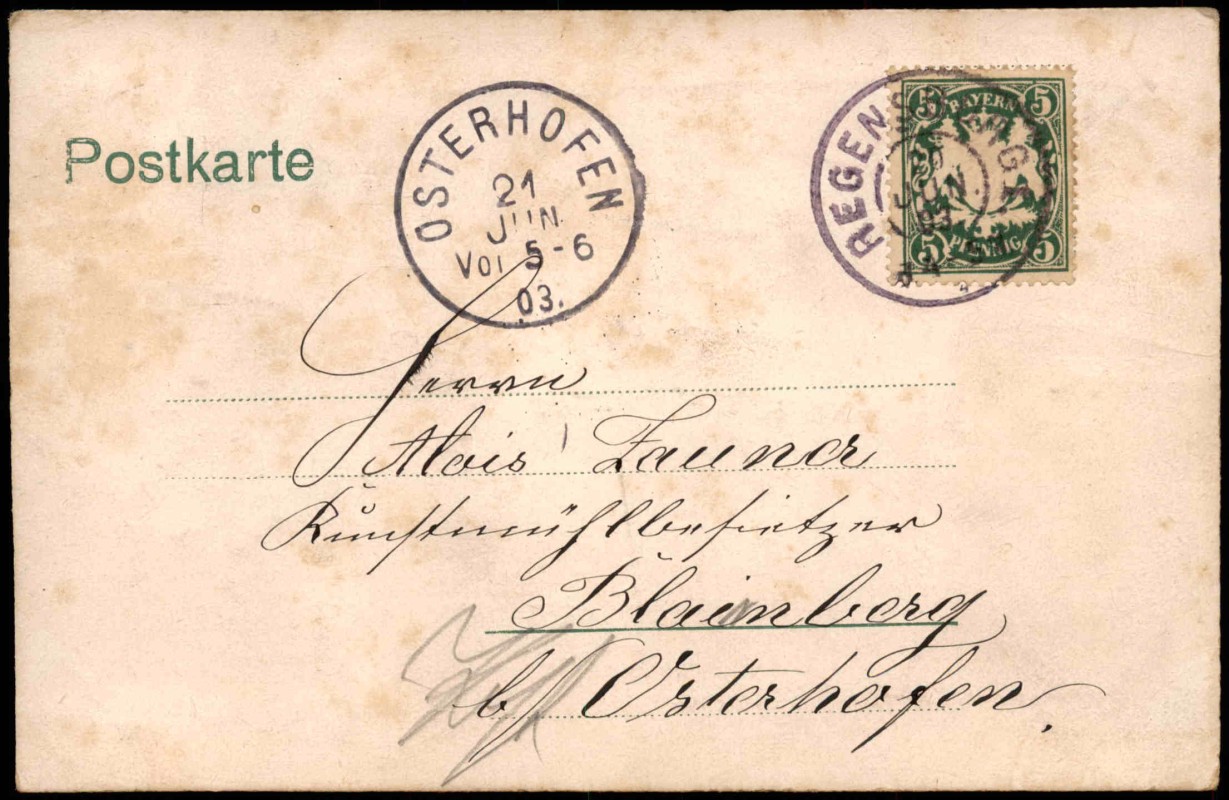 Postkarte
OSTERHOFEN
21
JUN
Vor 5-6
03.
REGENSBURG
JUN.
03
5 BAYERN 5
5 PFENNIG 5
Herrn
Alois Zauner
Kunstmühlbesietzer
Blainberg
b/ Osterhofen.